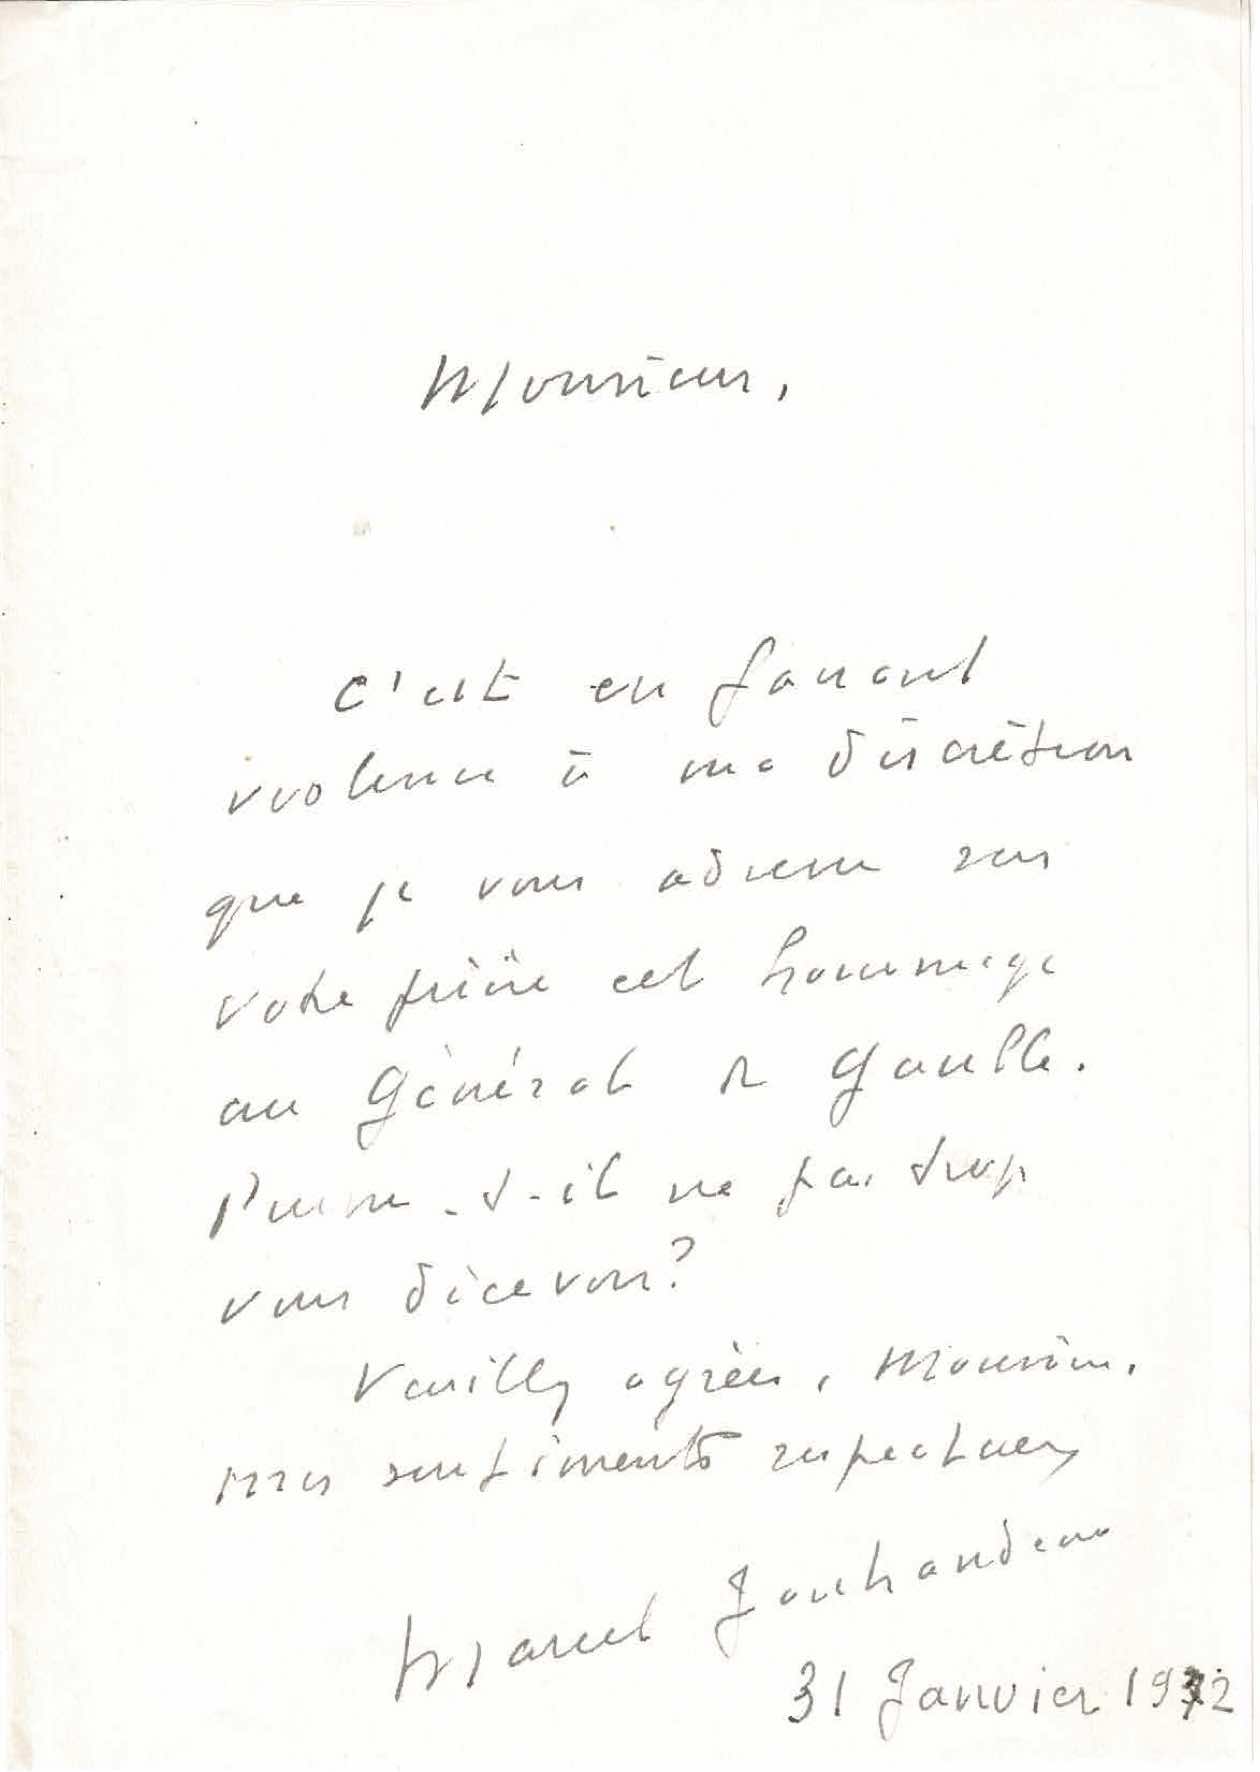 Monsieur,
C'est en faisant
violence à ma discrétion
que je vous adresse sur
votre prière cet hommage
au Général de Gaulle.
Puisse-t-il ne pas trop
vous décevoir?
Veuillez agréer, Monsieur,
mes sentiments respectueux
Marcel Jouhandeau
31 Janvier 1972